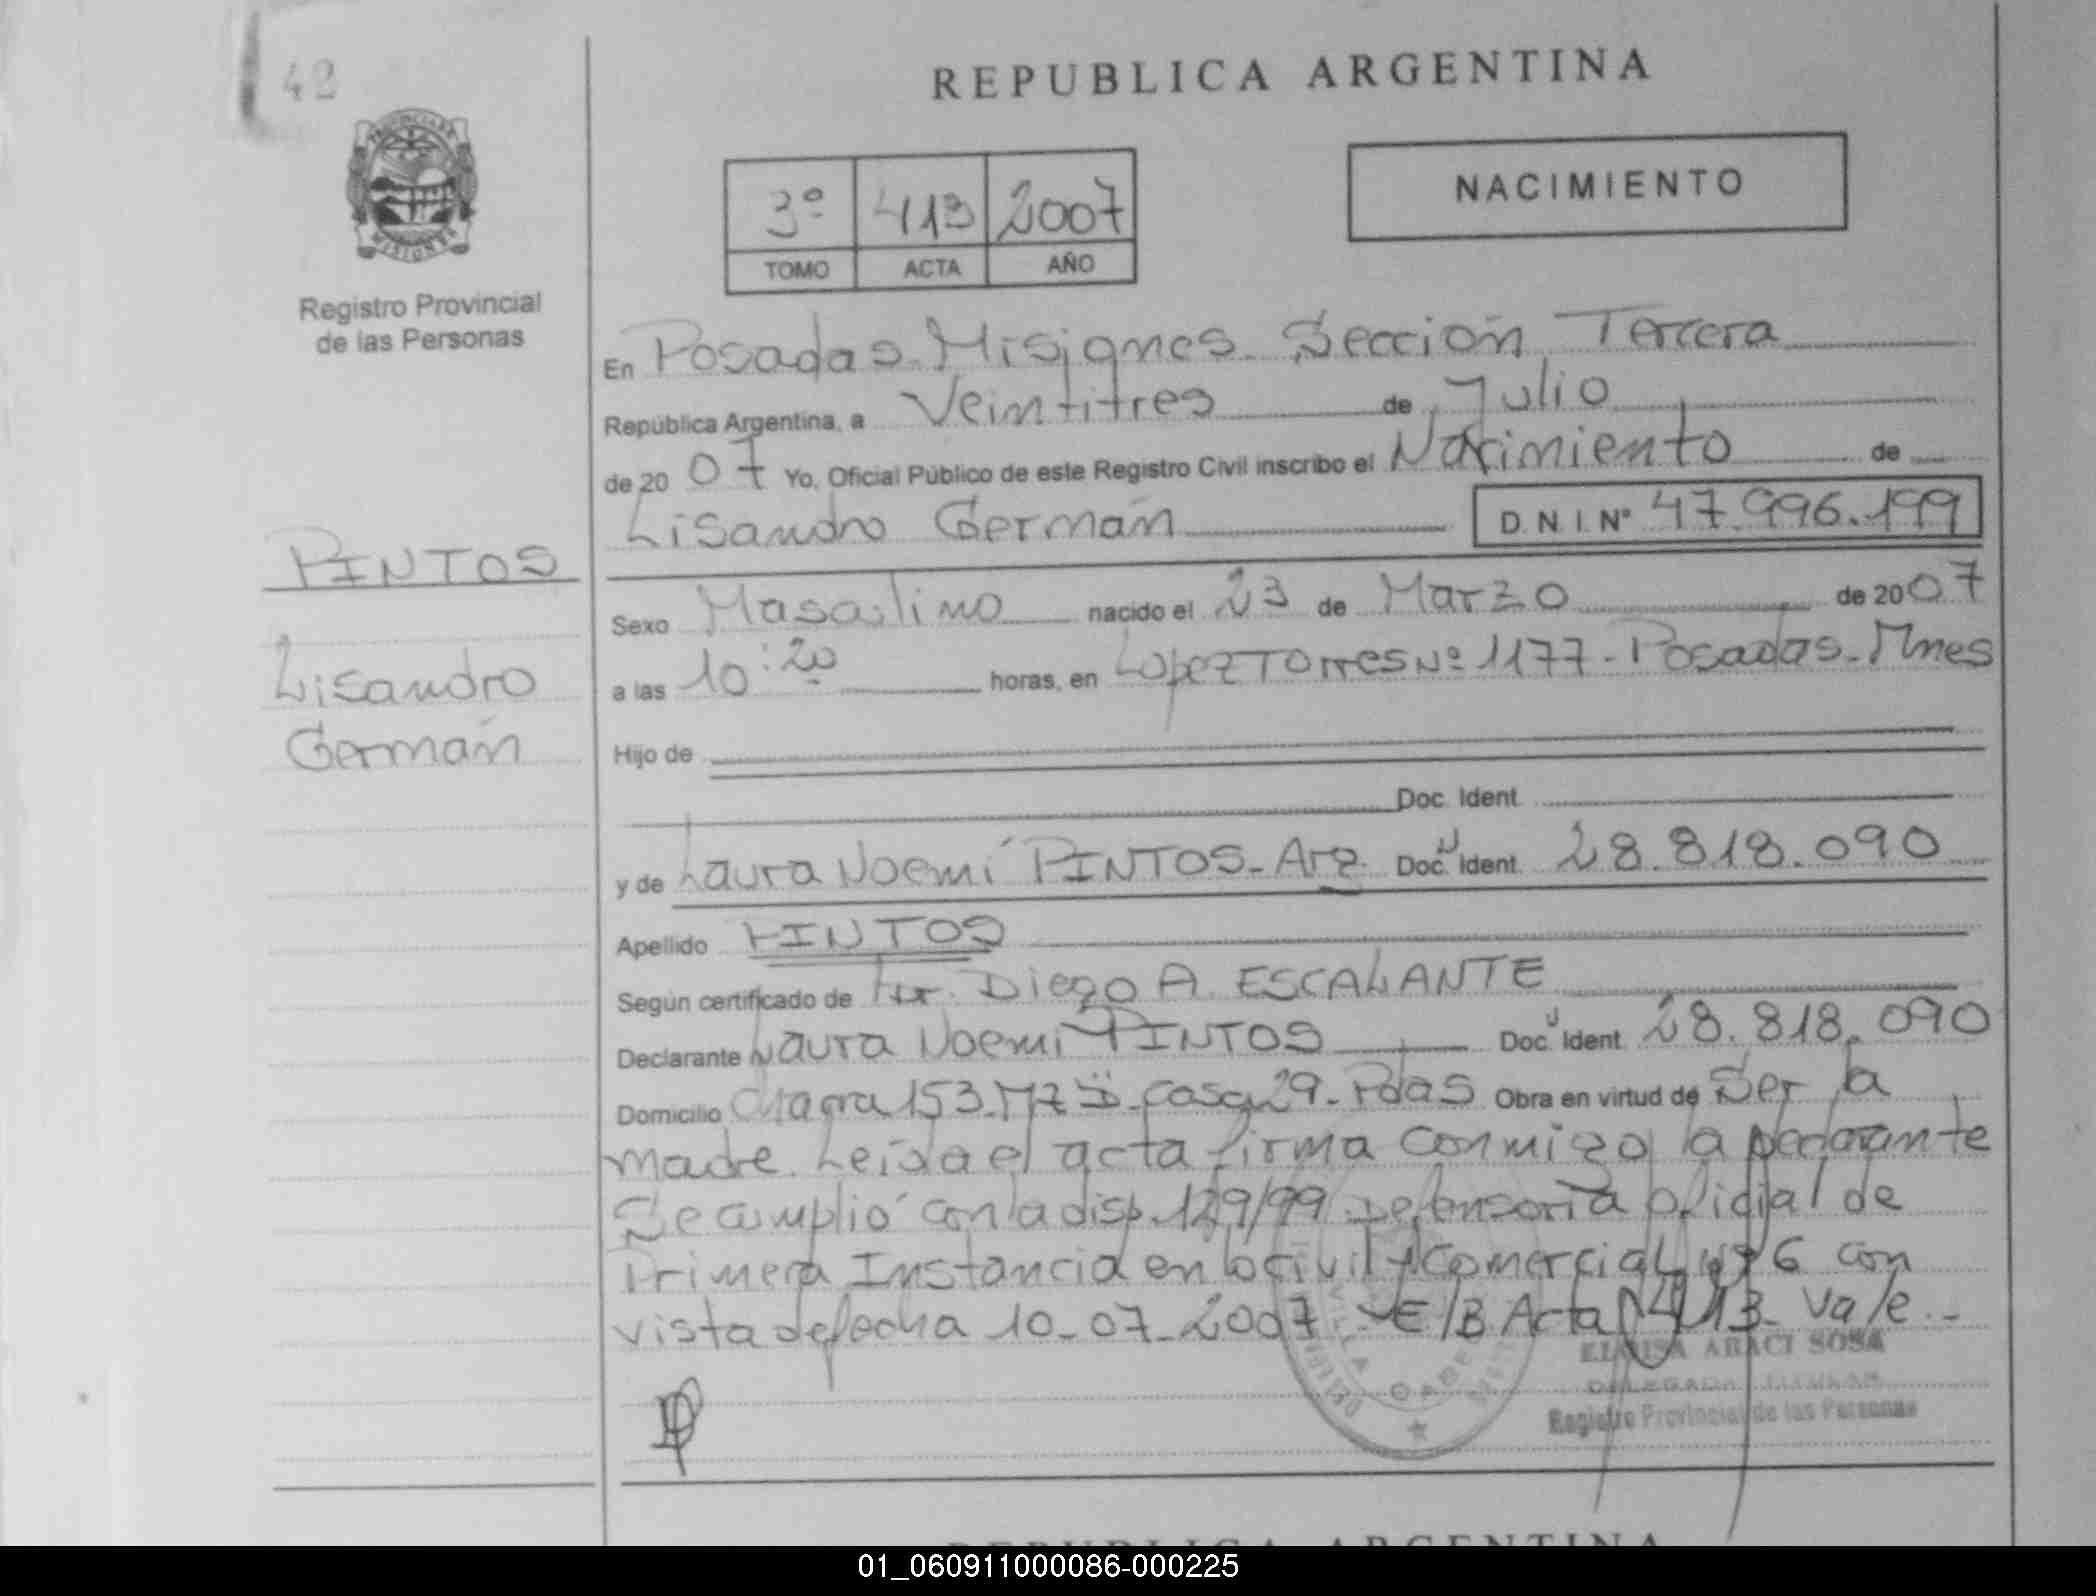 42
REPUBLICA ARGENTINA
PROVINCIA DE
MISIONES
Registro Provincial
de las Personas
3º 413 2007
TOMO ACTA AÑO
NACIMIENTO
En Posadas-Misiones-Sección Tercera
República Argentina, a Veintitres de Julio
de 2007 Yo, Oficial Público de este Registro Civil inscribo el Nacimiento de
Lisandro Germán D.N.I. Nº 47.996.199
PINTOS
Lisandro
Germán
Sexo Masculino nacido el 23 de Marzo de 2007
a las 10:20 horas, en Lopez Torres Nº 1177-Posadas-Mnes
Hijo de
Doc. Ident.
y de Laura Noemí PINTOS-Arg. Doc. U Ident. 28.818.090
Apellido PINTOS
Según certificado de Dr. Diego A. ESCALANTE
Declarante Laura Noemí PINTOS Doc. U Ident. 28.818.090
Domicilio Chacra 153-Casa 29-Pdas Obra en virtud de Ser la
madre. Leída el acta firma conmigo la
Se cumplió con la disp. 129/99 Defensoría oficial de
Primera Instancia en lo civil y Comercial nº 6 con
vista de fecha 10-07-2007-E/B Acta 413-Vale.-
ELOISA ARACI SOSA
DELEGADA TITULAR
Registro Provincial de las Personas
VILLA CABELLO
REPUBLICA ARGENTINA
01_060911000086-000225